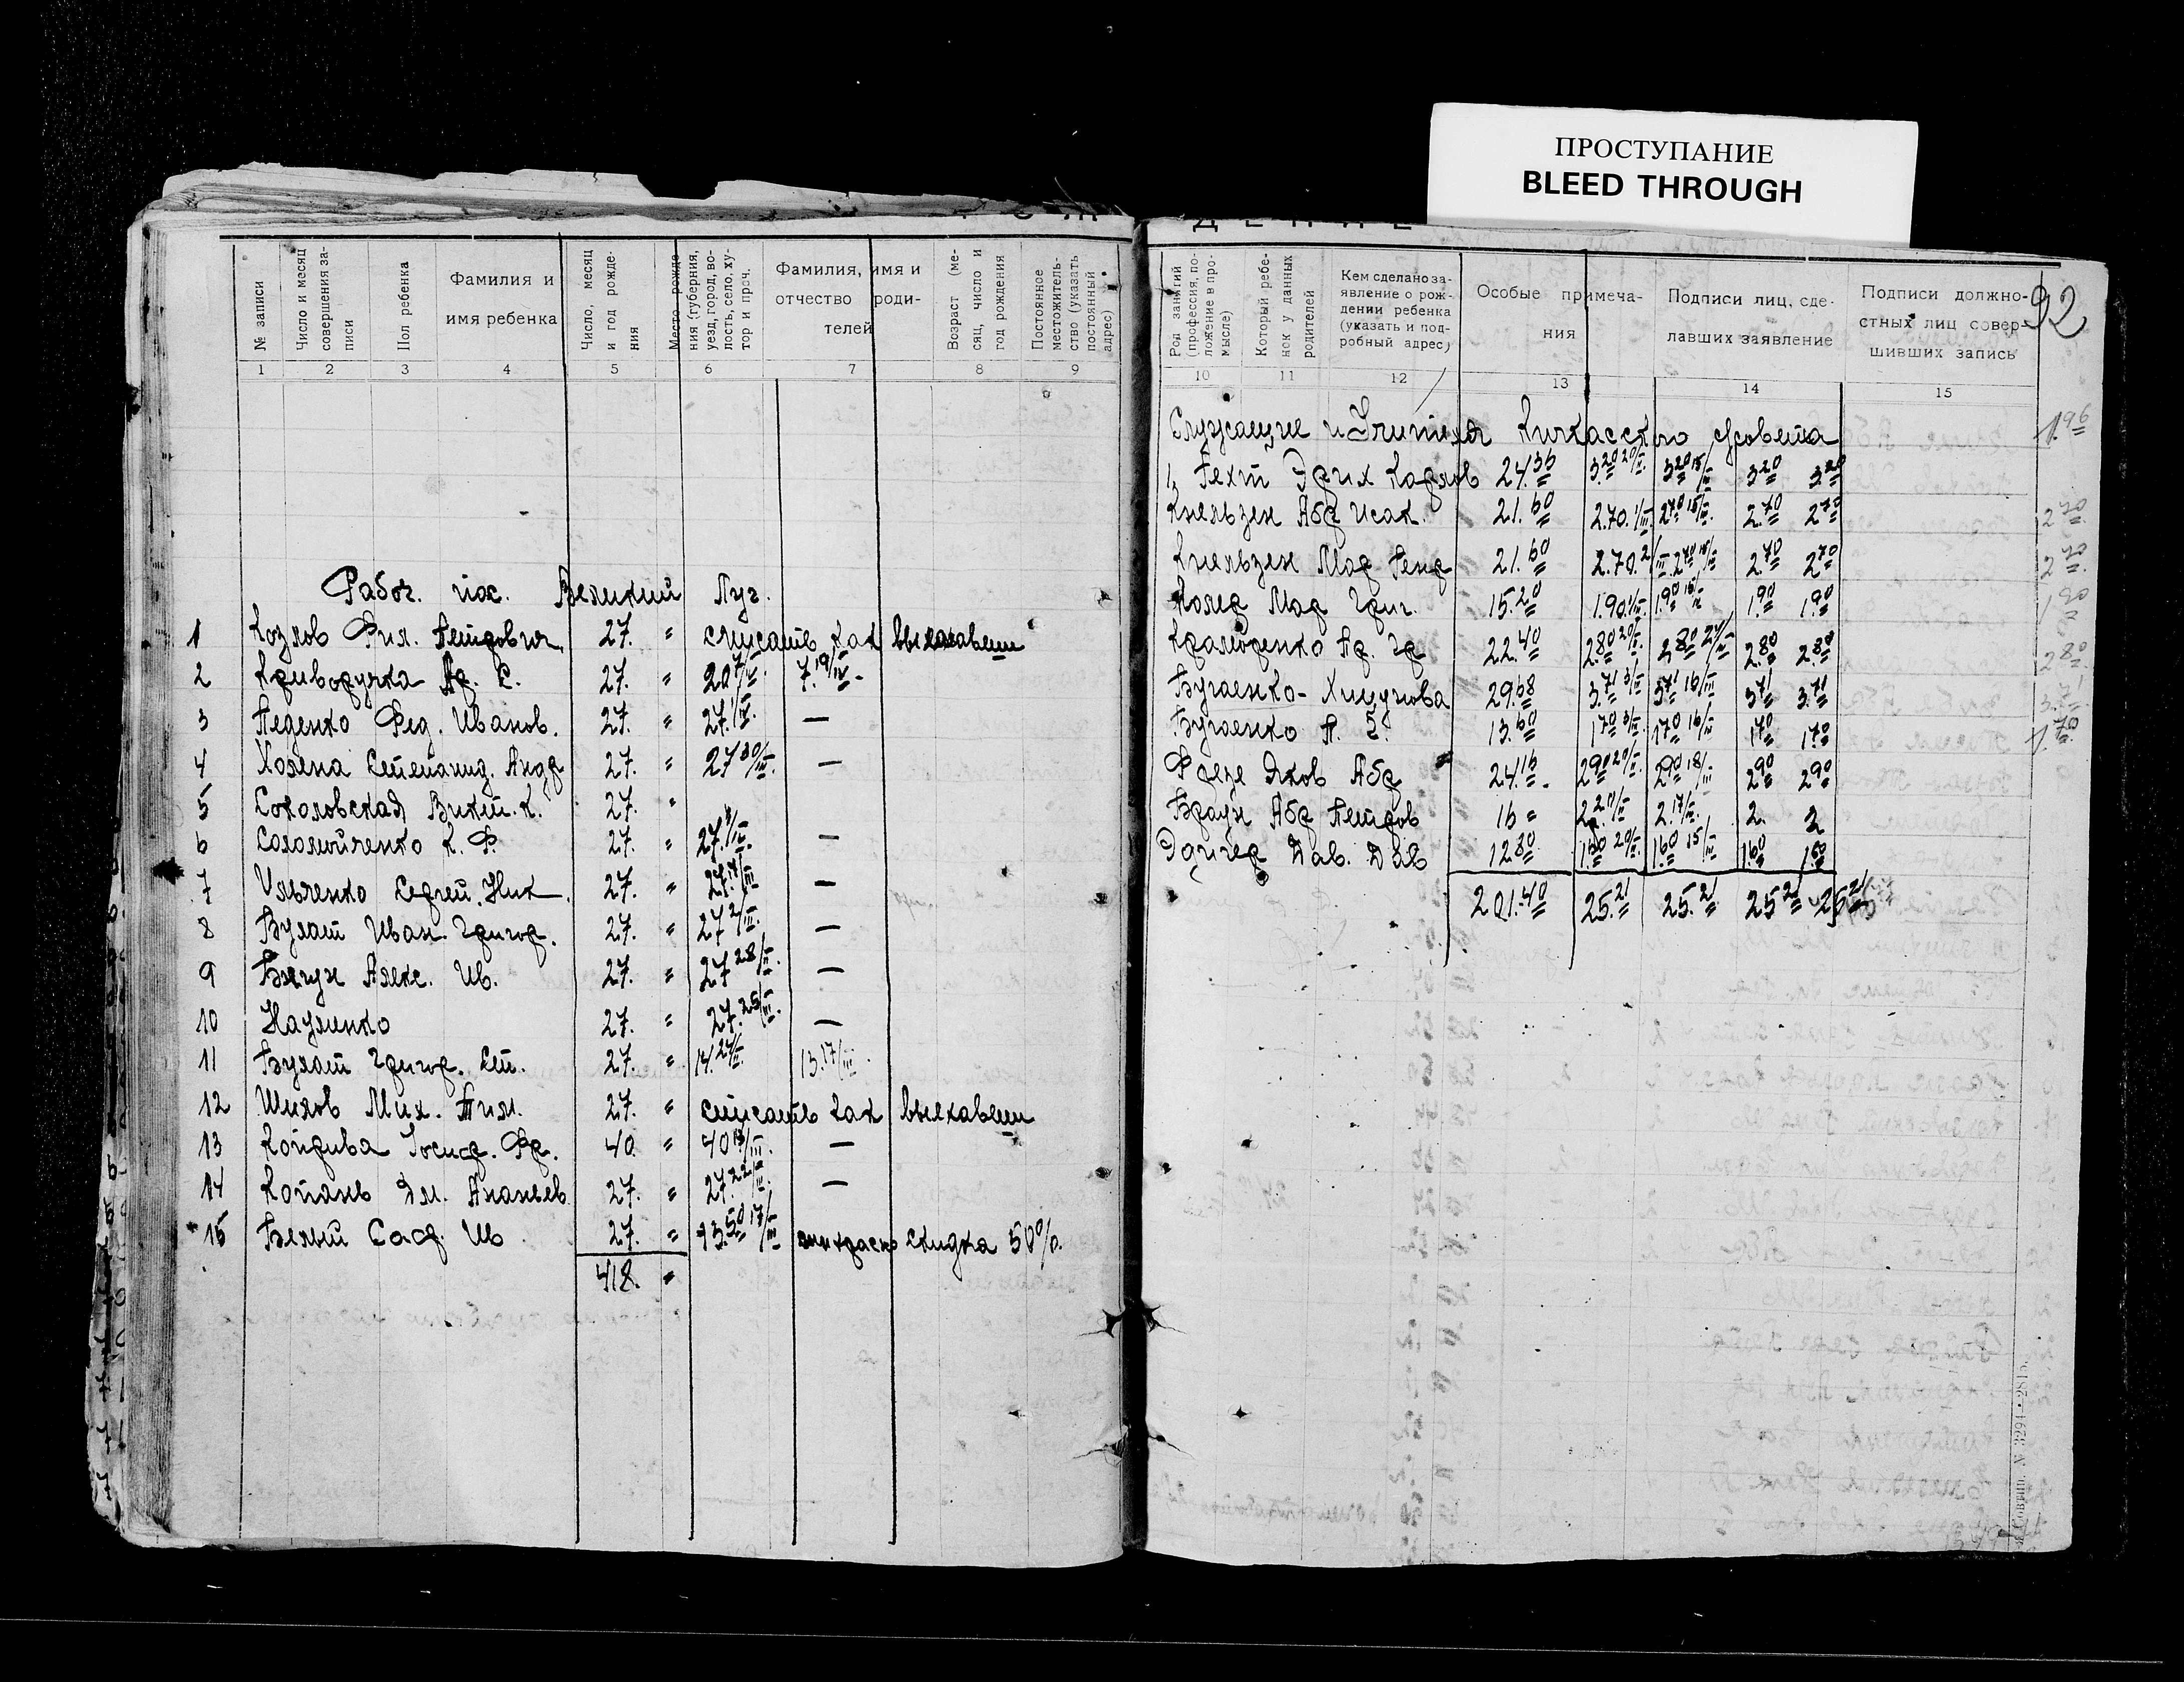 ПРОСТУПАНИЕ
BLEED THROUGH
№ записи
Число и месяц совершения записи
Пол ребенка
Фамилия и имя ребенка
Число, месяц и год рождения
Место рождения (губерния, уезд, город, волость, село, хутор и проч.
Фамилия, имя и отчество родителей
Возраст (месяц, число и год рождения
Постоянное местожительство (указать постоянный адрес)
1 2 3 4 5 6 7 8 9
Рабоч. пос. Великий Луг.
1 Козлов Фил. Петрович 27. " списать как выехавши
2 Криворучка Ар. С. 27. " 20 7/IV. 7. 19/IV -
3 Педенко Фед. Иванов. 27. " 27. —
4 Холена Степанид. Андр 27. " 27 30/III. —
5 Соколовская Викт. К. 27. "
6 Соломойченко К. Ф. 27. " 27. —
7 Ильченко Сергей. Ник 27. " 27. —
8 Булат Иван. Григор. 27. " 27 2/III. —
9 Бягун Алекс. Ив. 27. " 27 28/II. —
10 Науменко 27. " 27. 25/III. —
11 Булат Григор. Ст. 27. " 14. 24/II. 13. 17/III.
12 Шилов Мих. Тим. 27. " списать как выехавши
13 Койрива Иосиф. Фр. 40 " 40 /III. —
14 Копань Дм. Ананьев. 27. " 27. 22/III. —
15 Белый Саф. Ив 27. " 13.50 17/III скидка 50%.
418. "
92
Род занятий (профессия, положение в промысле)
Который ребенок у данных родителей
Кем сделано заявление о рождении ребенка (указать и подробный адрес)
Особые примечания
Подписи лиц, сделавших заявление
Подписи должностных лиц совершивших запись
10 11 12 13 14 15
Служащие и Учителя Кичкасского с/совета 1.96
1, Гехт Эрих Карлов 24.36 3.20 20/II. 3.20 18/III 3.20 3.20
Кнельзен Абр Исак. 21.60 2.70. 1/III. 2.70 18/III. 2.70 2.70 2.70
Кнельзен Мар Генр 21.60 2.70. 2/III. 2.70 18/III 2.70 2.70 2.70
Колер Мар Григ. 15.20 1.90. 1.90 1.90 1.90 1.90
Крамаренко Ар. Гр 22.40 2.80 20/II. 2.80 24/III 2.80 2.80 2.80
Бугаенко-Хицунова 29.68 3.71 3/III. 3.71 16/III 3.71 3.71 3.71
Бугаенко П. Е. 13.60 1.70 3/III. 1.70 16/III 1.70 1.70 1.70
Фрезе Яков Абр 24.16. 2.90 20/II. 2.90 18/III 2.90 2.90
Браун Абр Петров 16 = 2. 2. 17/III. 2. 2
Эдигер Дав. Дав 12.80 1.60 20/II. 1.60 15/III 1.60 1.60
201.40 25.21 25.21 25.21 25.21
Совтип. № 3291 • 281